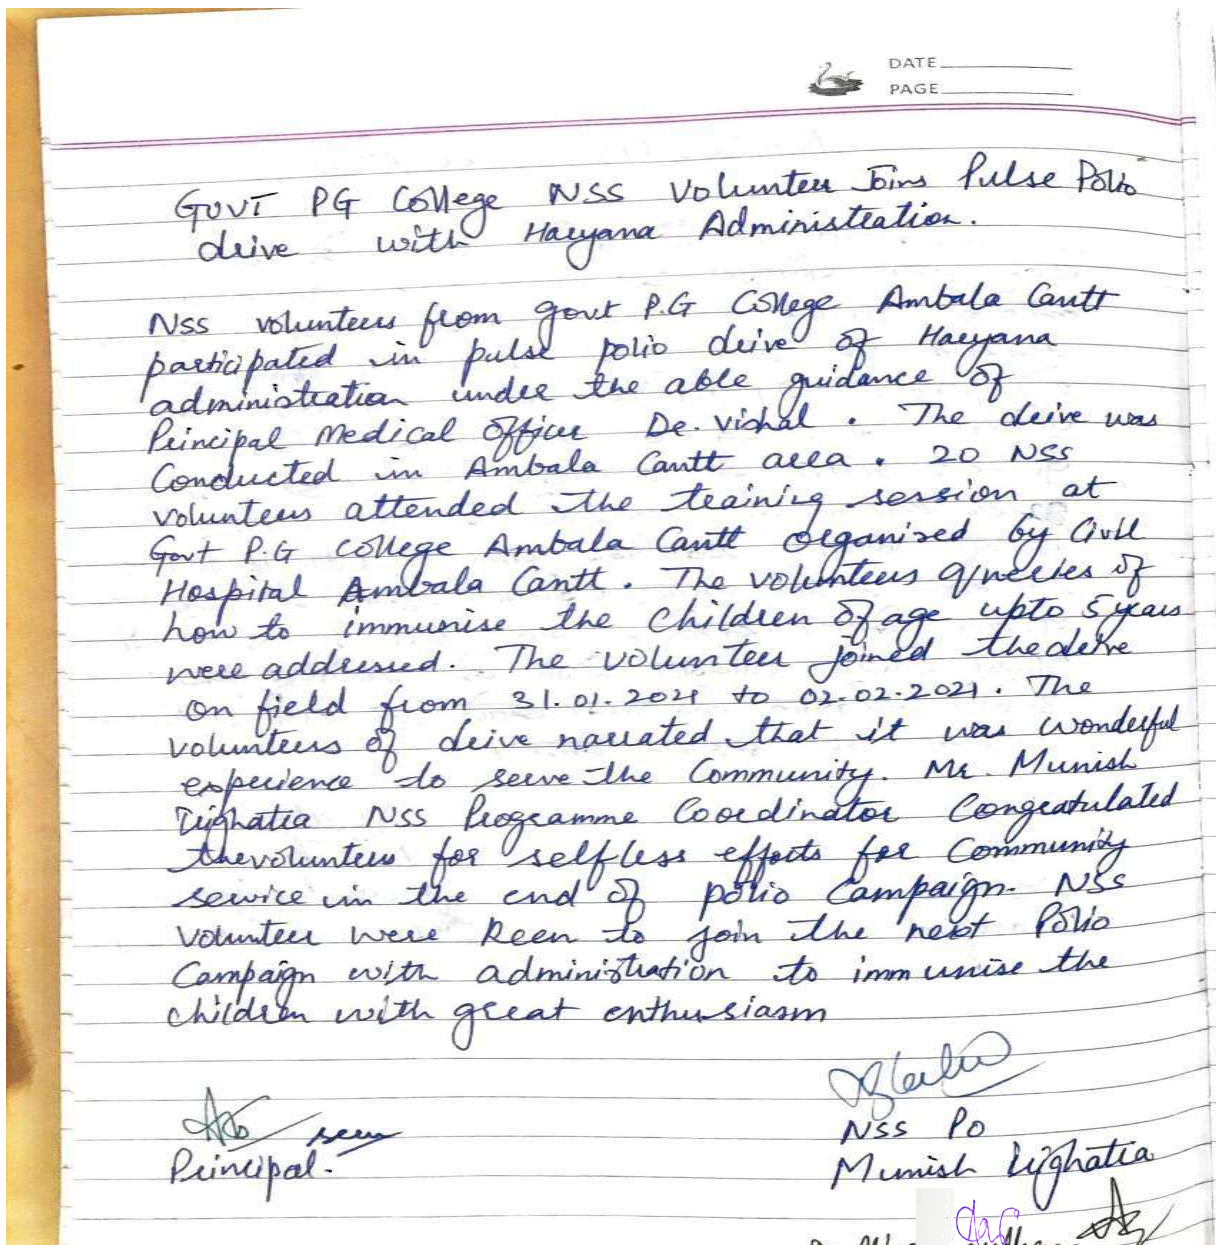 DATE
PAGE
Govt PG College NSS Volunteer Joins Pulse Polio
drive with Haryana Administration.
NSS volunteers from govt P.G College Ambala Cantt
participated in pulse polio drive of Haryana
administration under the able guidance of
Principal Medical Officer Dr. Vishal. The drive was
Conducted in Ambala Cantt area. 20 NSS
volunteers attended the training session at
Govt P.G College Ambala Cantt organised by Civil
Hospital Ambala Cantt. The volunteers queries of
how to immunise the children of age upto 5 years
were addressed. The volunteer joined the drive
on field from 31.01.2021 to 02.02.2021. The
volunteers of drive narrated that it was wonderful
experience to serve the Community. Mr. Munish
NSS Programme Coordinator Congratulated
the volunteers for selfless efforts for Community
service in the end of polio Campaign. NSS
Volunteer were keen to join the next Polio
Campaign with administration to immunise the
children with great enthusiasm
NSS PO
Principal.
Munish